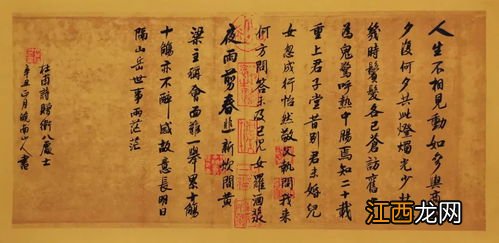 人生不相見動如参與商
夕復何夕共此燈燭光少壯
幾時鬢髮各已蒼訪舊
為鬼驚呼熱中腸焉知二十載
重上君子堂昔別君未婚兒
女忽成行怡然敬父執問我來
何方問答未及已兒女羅酒漿
夜雨剪春韭新炊間黃
梁主稱會面難一舉累十觴
十觴亦不醉感故意長明日
隔山岳世事兩茫茫
杜甫詩贈衛八處士
辛丑月皖南山人書
江西龙网